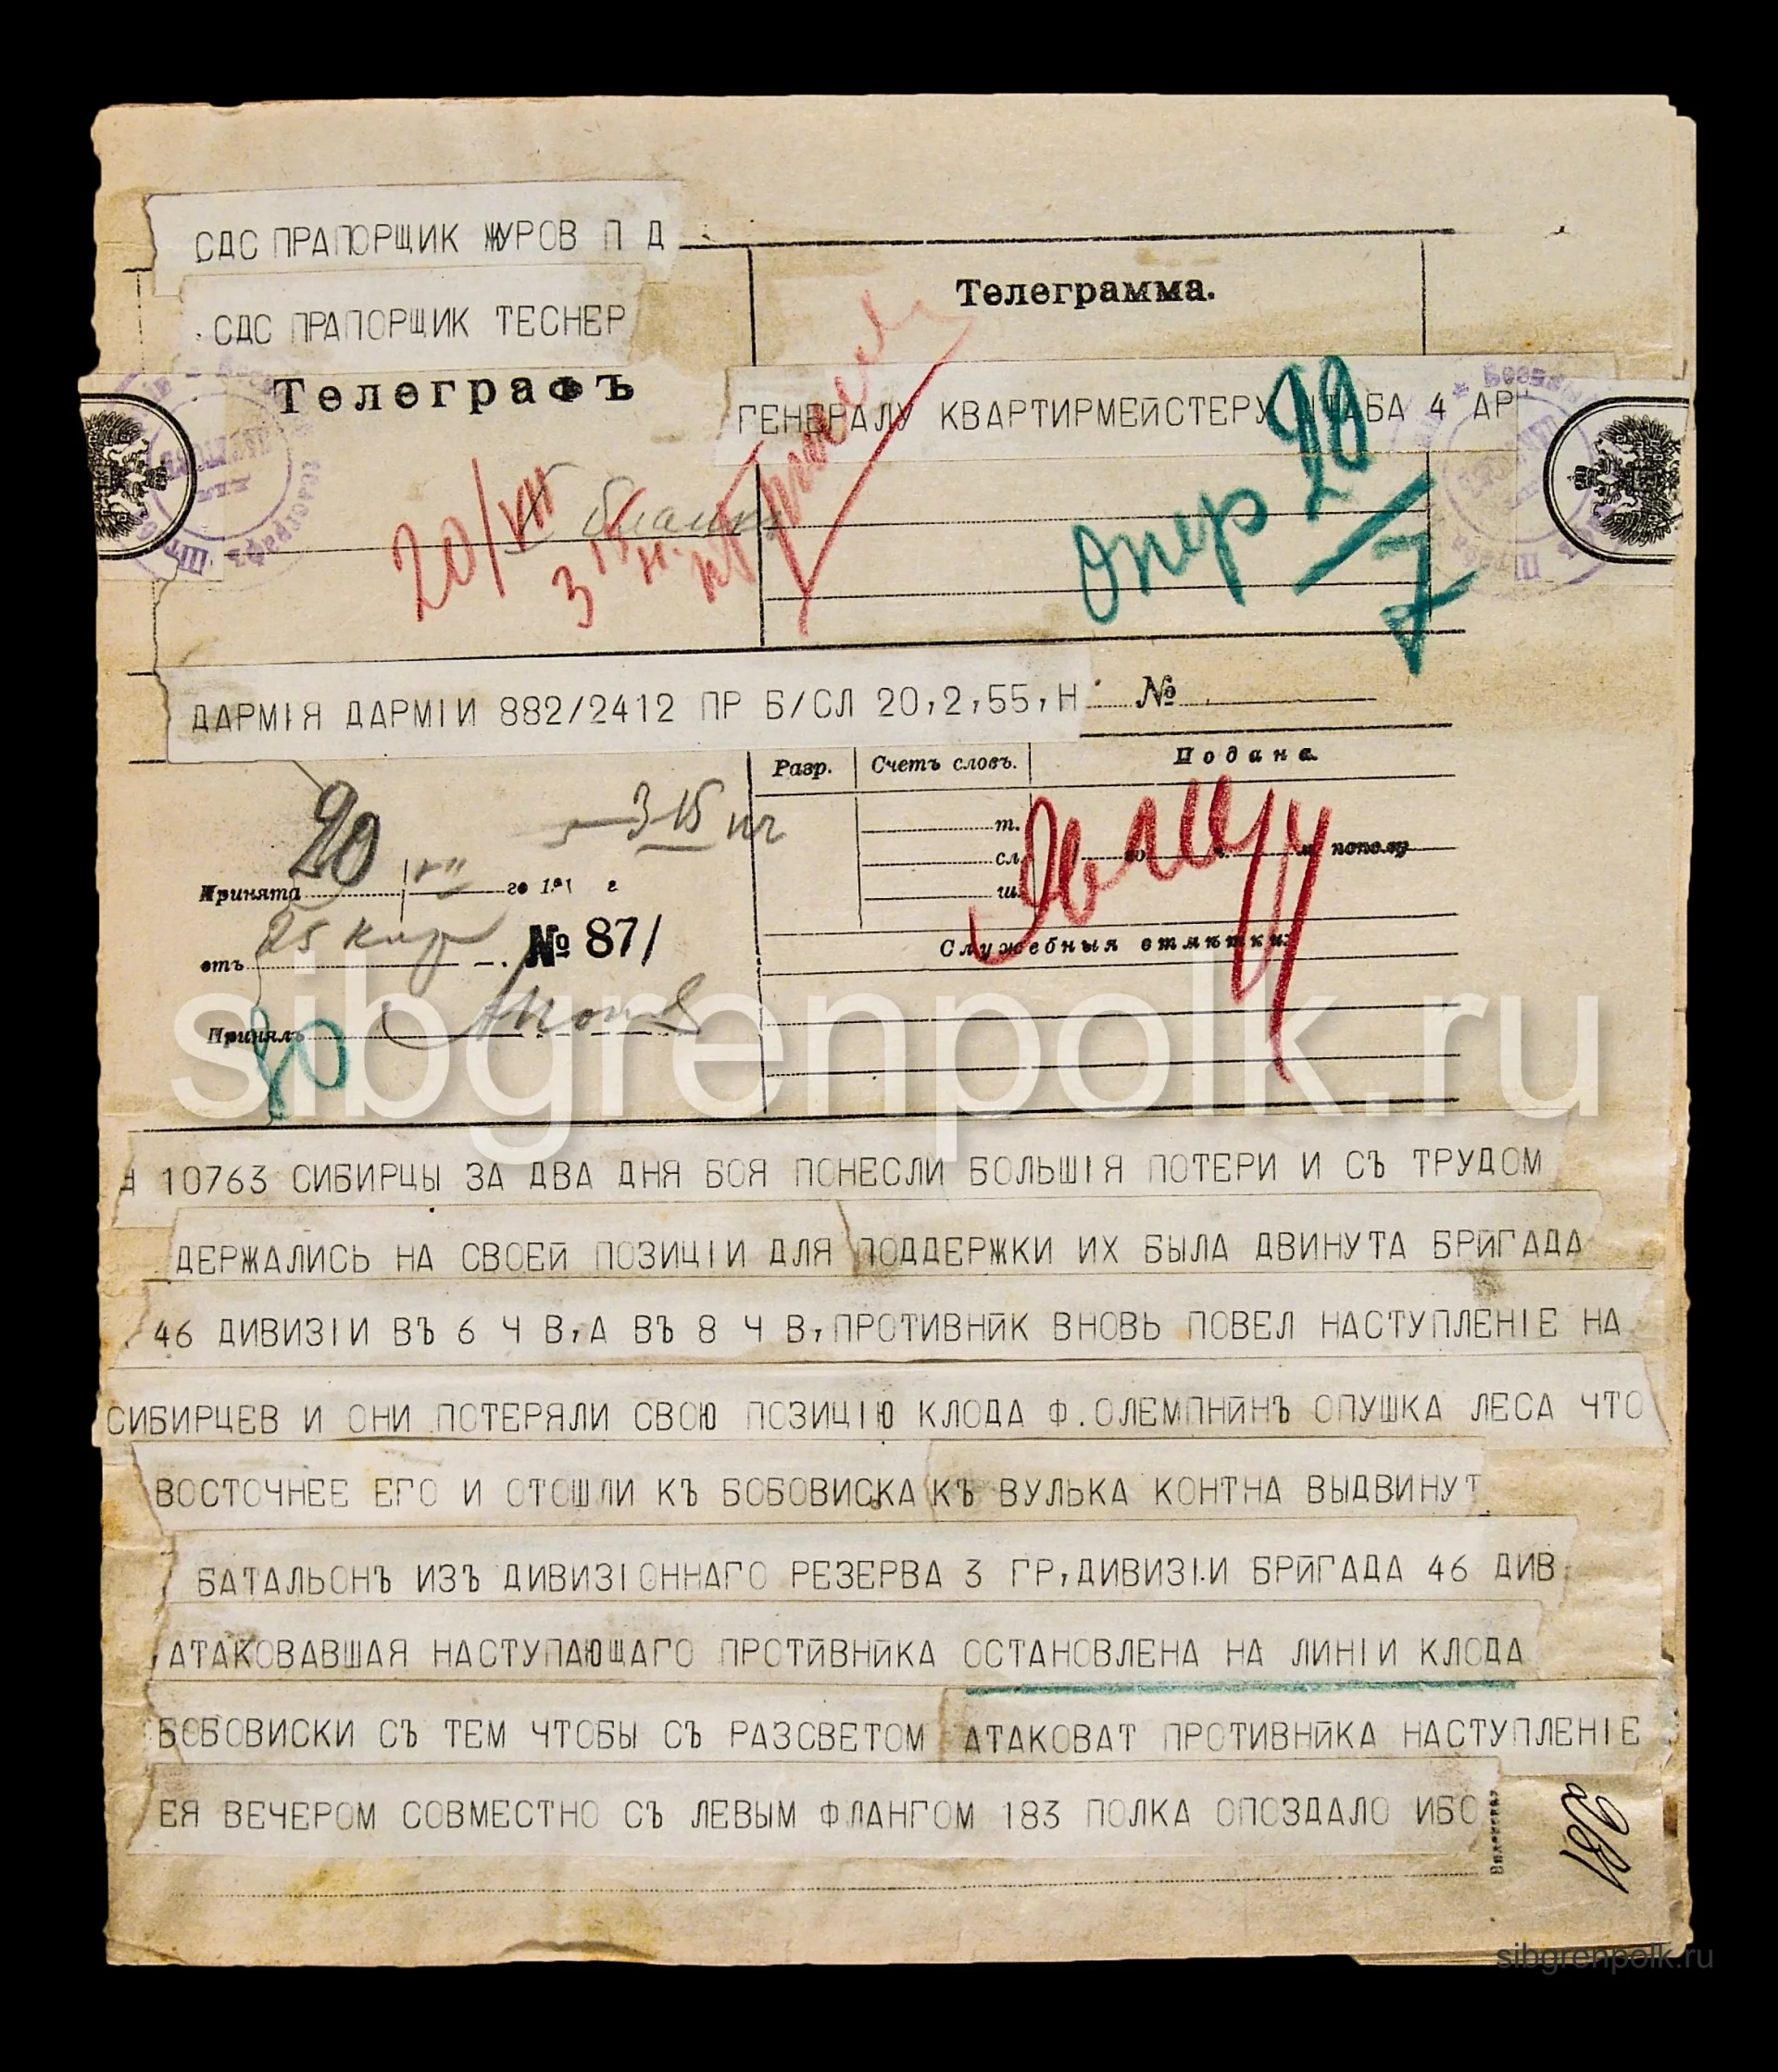 СДС ПРАПОРЩИК ЖУРОВ П Д
СДС ПРАПОРЩИК ТЕСНЕР
Телеграмма.
Телеграфъ
ГЕНЕРАЛУ КВАРТИРМЕЙСТЕРУ ШТАБА 4 АР
20/VII
3 15 н.
Опер 20/7
ДАРМІЯ ДАРМІИ 882/2412 ПР Б/СЛ 20,2,55,Н
№
Разр. Счетъ словъ. Подана
20 3 15 нч
т.
сл.
ш.
го ч. м пополу
Принята 20 VII го 191 г
25 кор № 87/
отъ
Служебныя отмѣтки
Принялъ
sibgrenpolk.ru
Н 10763 СИБИРЦЫ ЗА ДВА ДНЯ БОЯ ПОНЕСЛИ БОЛЬШІЯ ПОТЕРИ И СЪ ТРУДОМ
ДЕРЖАЛИСЬ НА СВОЕЙ ПОЗИЦІИ ДЛЯ ПОДДЕРЖКИ ИХ БЫЛА ДВИНУТА БРЙГАДА
46 ДИВИЗІИ ВЪ 6 Ч В,А ВЪ 8 Ч В,ПРОТИВНЙК ВНОВЬ ПОВЕЛ НАСТУПЛЕНІЕ НА
СИБИРЦЕВ И ОНИ ПОТЕРЯЛИ СВОЮ ПОЗИЦІЮ КЛОДА Ф.ОЛЕМПНЙНЪ ОПУШКА ЛЕСА ЧТО
ВОСТОЧНЕЕ ЕГО И ОТОШЛИ КЪ БОБОВИСКА КЪ ВУЛЬКА КОНТНА ВЫДВИНУТ
БАТАЛЬОНЪ ИЗЪ ДИВИЗІОННАГО РЕЗЕРВА 3 ГР,ДИВИЗІИ БРЙГАДА 46 ДИВ
АТАКОВАВШАЯ НАСТУПАЮЩАГО ПРОТЙВНЙКА ОСТАНОВЛЕНА НА ЛИНІИ КЛОДА
БОБОВИСКИ СЪ ТЕМ ЧТОБЫ СЪ РАЗСВЕТОМ АТАКОВАТ ПРОТИВНЙКА НАСТУПЛЕНІЕ
ЕЯ ВЕЧЕРОМ СОВМЕСТНО СЪ ЛЕВЫМ ФЛАНГОМ 183 ПОЛКА ОПОЗДАЛО ИБО
281
sibgrenpolk.ru